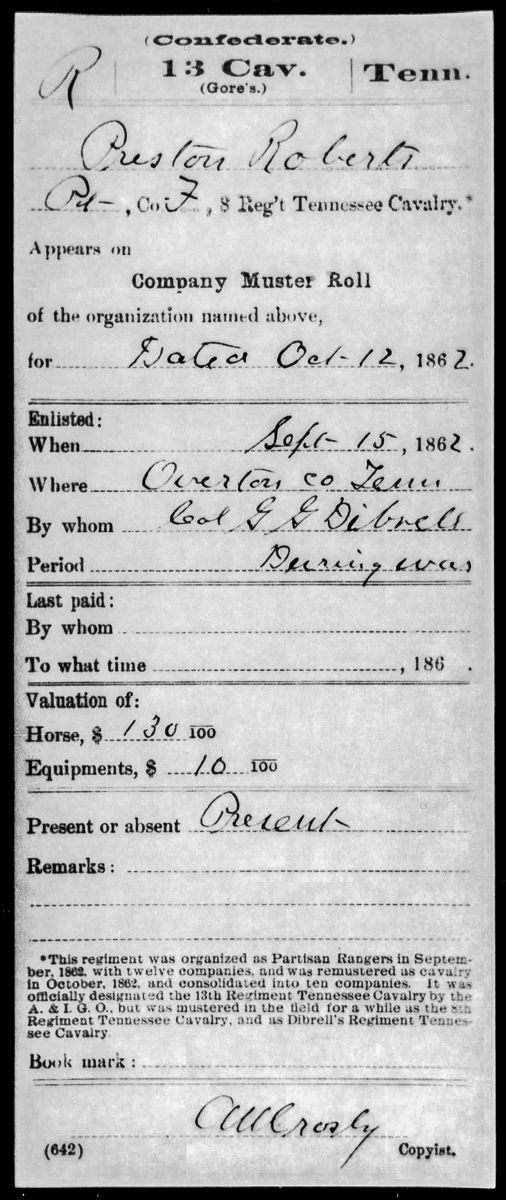 (Confederate.)
R | 13 Cav. | Tenn.
(Gore's.)
Preston Roberts
Pvt, Co. F, 8 Reg't Tennessee Cavalry.*
Appears on
Company Muster Roll
of the organization named above,
for Dated Oct 12, 1862.
Enlisted:
When Sept 15, 1862.
Where Overton co Tenn
By whom Col G G Dibrell
Period During war
Last paid:
By whom
To what time , 186 .
Valuation of:
Horse, $ 130 100
Equipments, $ 10 100
Present or absent Present
Remarks:
*This regiment was organized as Partisan Rangers in Septem-
ber, 1862, with twelve companies, and was remustered as cavalry
in October, 1862, and consolidated into ten companies. It was
officially designated the 13th Regiment Tennessee Cavalry by the
A. & I. G. O., but was mustered in the field for a while as the 8th
Regiment Tennessee Cavalry, and as Dibrell's Regiment Tennes-
see Cavalry.
Book mark:
Crosby
(642) Copyist.